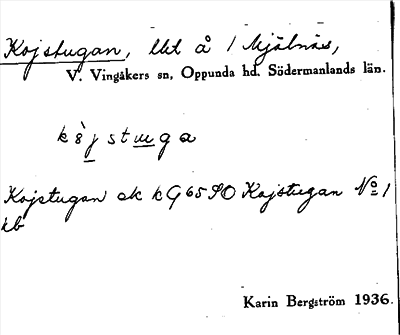 Kojstugan, lht å / Mjälnäs,
V. Vingåkers sn, Oppunda hd. Södermanlands län.
k8jstuga
Kojstugan ek kG 6590 Kojstugan № 1
kb
Karin Bergström 1936.